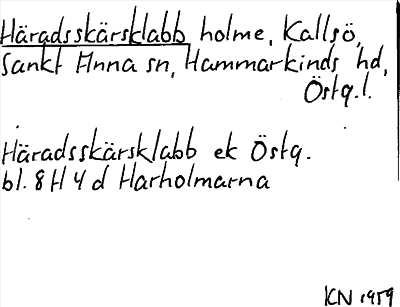 Häradsskärsklabb holme, Kallsö,
Sankt Anna sn, Hammarkinds hd,
Östg.l.
Häradsskärsklabb ek Östg.
bl. 8 H 4 d Harholmarna
KN 1959